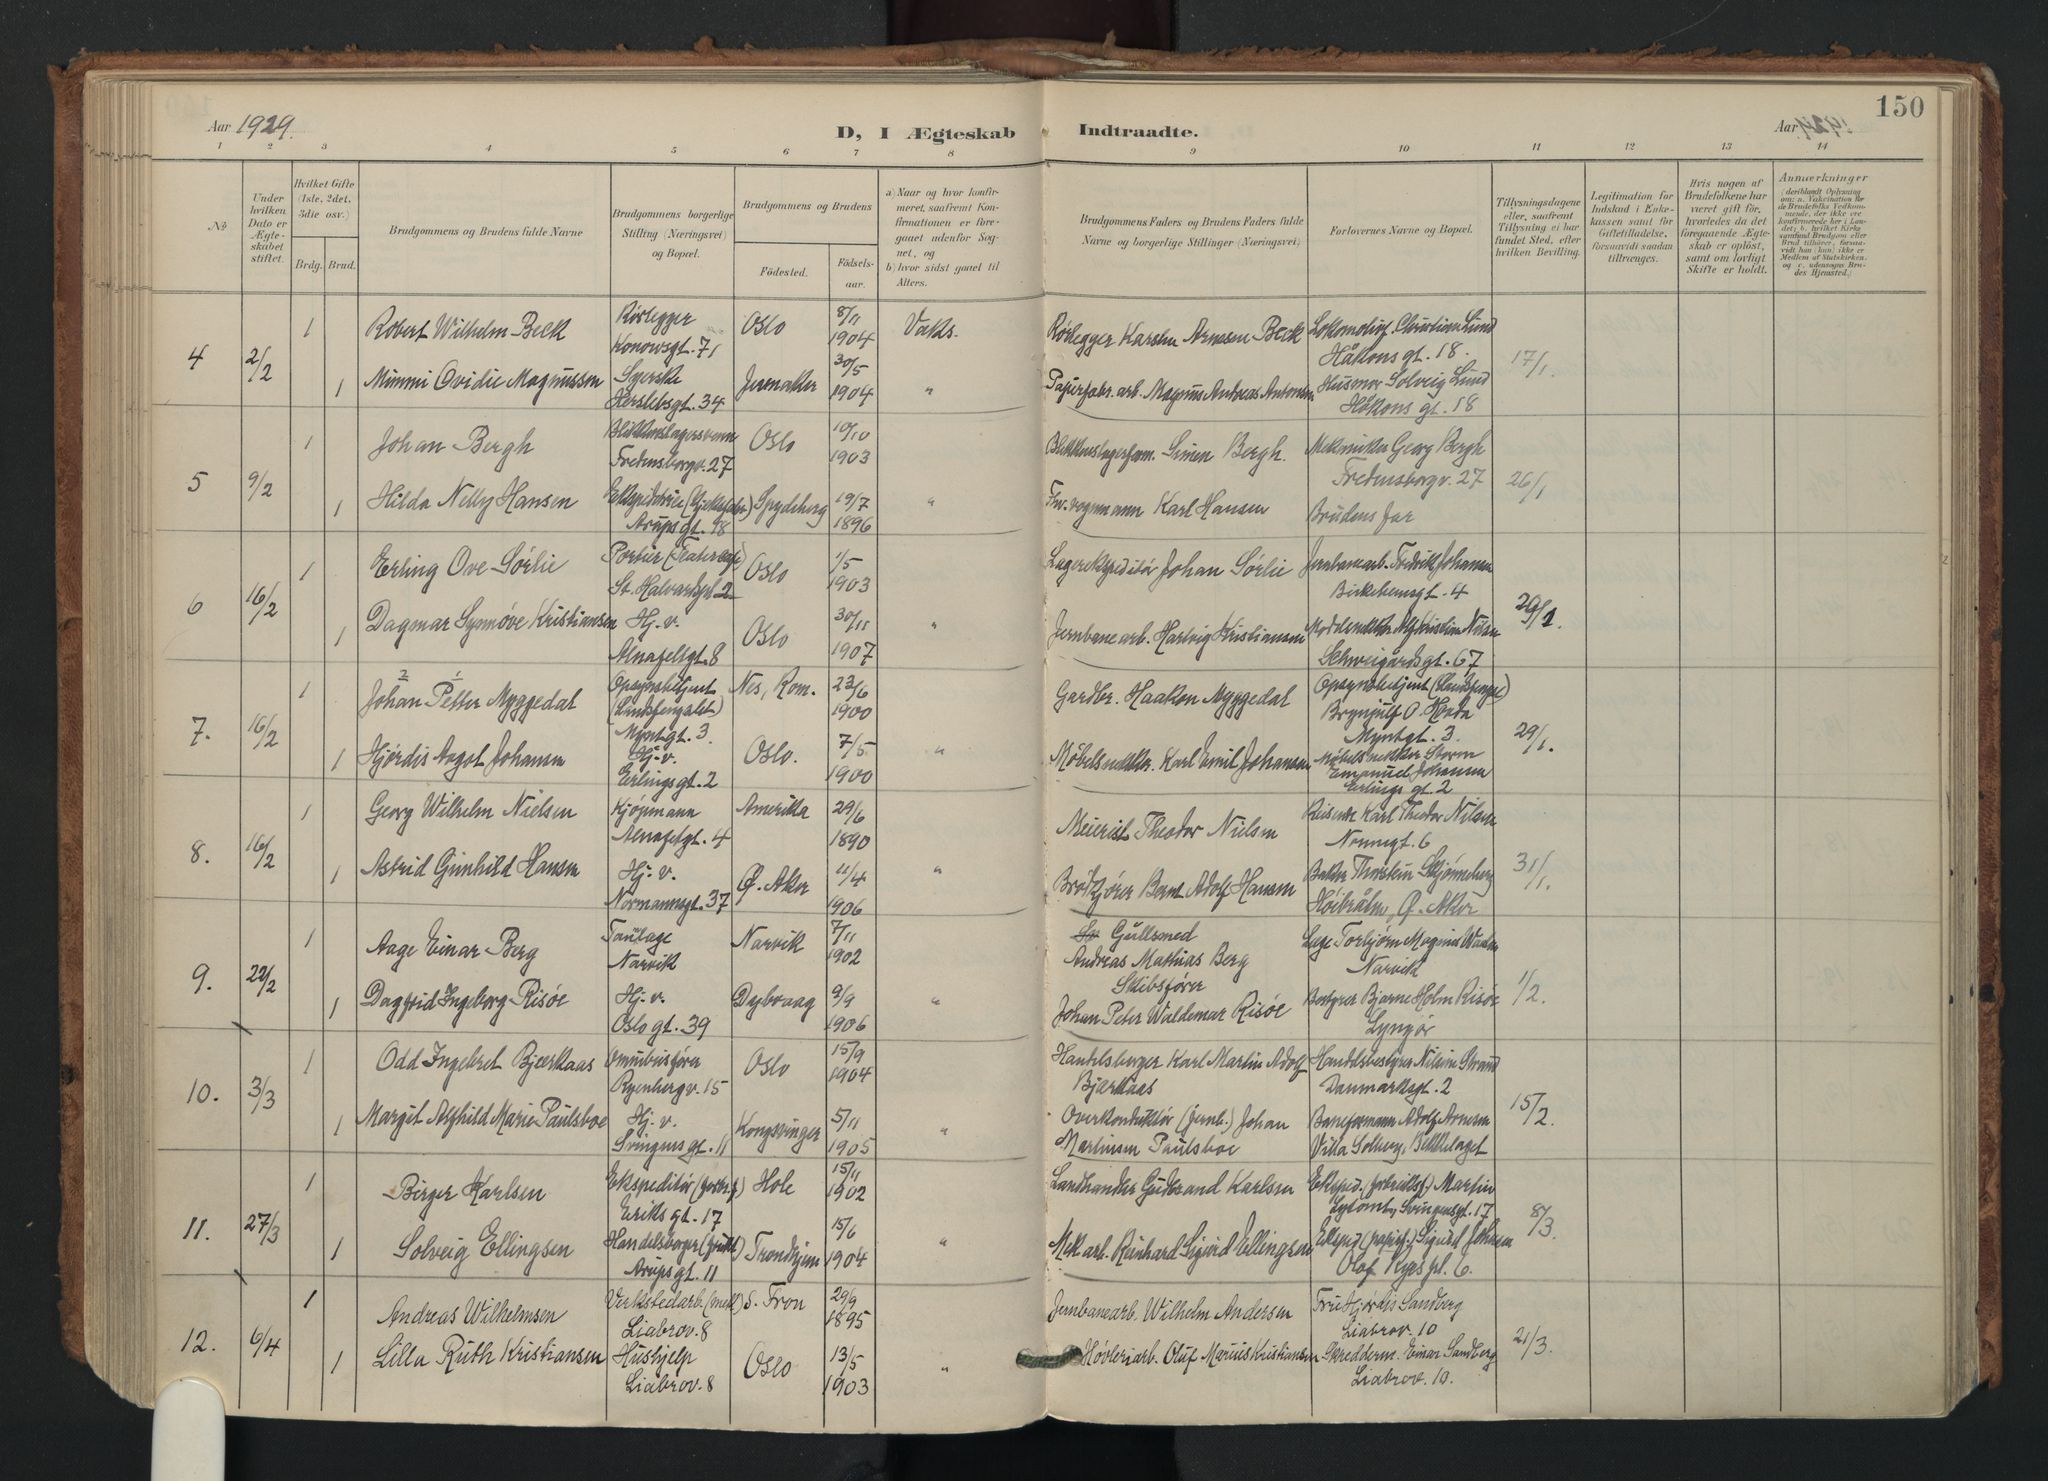 Aar 1929.
D, I Ægteskab Indtraadte.
Aar 1929.
150
1 2 3 4 5 6 7 8 9 10 11 12 13 14
No
Under hvilken Dato er Ægteskabet stiftet.
Hvilket Gifte (1ste, 2det, 3die osv.)
Brdg. Brud.
Brudgommens og Brudens fulde Navne
Brudgommens borgerlige Stilling (Næringsvei) og Bopæl.
Brudgommens og Brudens
Fødested.
Fødselsaar.
a) Naar og hvor konfirmeret, saafremt Konfirmationen er foregaaet udenfor Sognet, og
b) hvor sidst gaaet til Alters.
Brudgommens Faders og Brudens Faders fulde Navne og borgerlige Stillinger (Næringsvei)
Forlovernes Navne og Bopæl.
Tillysningsdagene eller, saafremt Tillysning ei har fundet Sted, efter hvilken Bevilling.
Legitimation for Indskud i Enkekassen samt for Giftetilladelse, forsaavidt saadan tiltrænges.
Hvis nogen af Brudefolkene har været gift før, hvorledes da det foregaaende Ægteskab er opløst, samt om lovligt Skifte er holdt.
Anmærkninger
4 2/2
1 Robert Wilhelm Beck Rørlegger Konowsgt. 71 Oslo 8/11 1904 Vaks. Rørlegger Karsten Arnesen Beck Lokomotivf. Christian Lund Håkons gt. 18. 17/1.
1 Mimmi Ovidie Magnussen Syerske Herslebsgt. 34 Jernaker 30/5 1904 " Papirfabr. arb. Magnus Andreas Antonsen Husmor Solveig Lund Håkons gt. 18
5 9/2
1 Johan Bergh Blikkenslagersvenn Fredensborgv. 27 Oslo 10/10 1903 Blikkenslagerform. Simen Bergh. Mekaniker Georg Bergh Fredensborgv. 27 26/1
1 Hilda Nelly Hansen Arups gt. 18 Spydeberg 19/7 1896 " Karl Hansen Brudens far
6 16/2
1 Erling Ove Sørlie Portier St. Halvardsgt. 2 Oslo 1/5 1903 Lagerekspeditør Johan Sørlie Jernbanearb. Fredrik Johansen Birkebeinsgt. 4 29/1.
1 Dagmar Synnøve Kristiansen Hj. v. Alnafetgt. 8 Oslo 30/11 1907 " Jernbanearb. Hartvig Kristiansen Alf Kristian Nilsen Schweigårdsgt. 67
7. 16/2
1 Johan Petter Myggedal Opsynsbetjent (Landsfengslet) Myntgt. 3. Nes, Rom. 23/6 1900 Gardbr. Haakon Myggedal Opsynsbetjent (Landsfengsl) Brynjulf O. Honda Myntgt. 3. 29/1.
1 Hjørdis Aagot Johansen Hj. v. Erlingsgt. 2 Oslo. 7/5 1900 " Møbelsnekker. Karl Emil Johansen Møbelsnekker Storm Emanuel Johansen Erlings gt. 2
8. 16/2
1 Georg Wilhelm Nielsen Kjøpmann Alnafetgt. 4 Amerika 29/6 1890 Meierist Theodor Nielsen Reisende Karl Theodor Nilsen Nonnegt. 6 31/1.
1 Astrid Gunhild Hansen Hj. v. Normannsgt. 37 Ø. Aker 11/4 1906 " Brødkjører Bernt Adolf Hansen Baker Thorstein Skjønneberg Høibråten, Ø. Aker
9. 22/2
1 Aage Einar Berg Tannlæge Narvik Narvik 7/11 1902 Gullsmed Andreas Mathias Berg Læge Torbjørn Magnus Narvik 1/2.
1 Dagfrid Ingeborg Risøe Hj. v. Oslo gt. 39 Dybvaag 9/9 1906 " Skibsfører Johan Peter Waldemar Risøe Bestyrer Bjarne Holm Risøe Lyngør
10. 3/3
1 Odd Ingebret Bjærkaas Omnibusfører Ryenbergv. 15 Oslo 15/9 1904 Handelsborger Karl Martin Adolf Bjærkaas Handelsbestyrer Strand Danmarksgt. 2 15/2.
1 Margit Alfhild Marie Paulsboe Hj. v. Svingens gt. 11 Kongsvinger 5/11 1905 " Overkonduktør (Jernb.) Johan Martinsen Paulsboe Baneformann Adolf Arnesen Villa Solberg, Bekkelaget
11. 27/3
1 Birger Karlsen Ekspeditør Eriks gt. 17 Hole 15/11 1902 Landhandler Gudbrand Karlsen Eksped. Martin Svingensgt. 17 8/3.
1 Solveig Ellingsen Handelsborger (frukt) Arups gt. 11 Trondhjem 15/6 1904 " Mek arb. Reinhard Sigurd Ellingsen Eksped. (papirf.) Sigurd Johansen Olaf Ryes pl. 6.
12. 6/4
1 Andreas Wilhelmsen Verkstedarb. (mek) Liabrov. 8 S. Fron 29/9 1895 Jernbanearb. Wilhelm Andersen Fru Hjørdis Sandberg Liabrov. 10 21/3.
1 Lilla Ruth Kristiansen Hushjelp Liabrov. 8 Oslo 13/5 1903 " Høvleriarb. Oluf Marius Kristiansen Skredderm. Einar Sandberg Liabrov. 10.